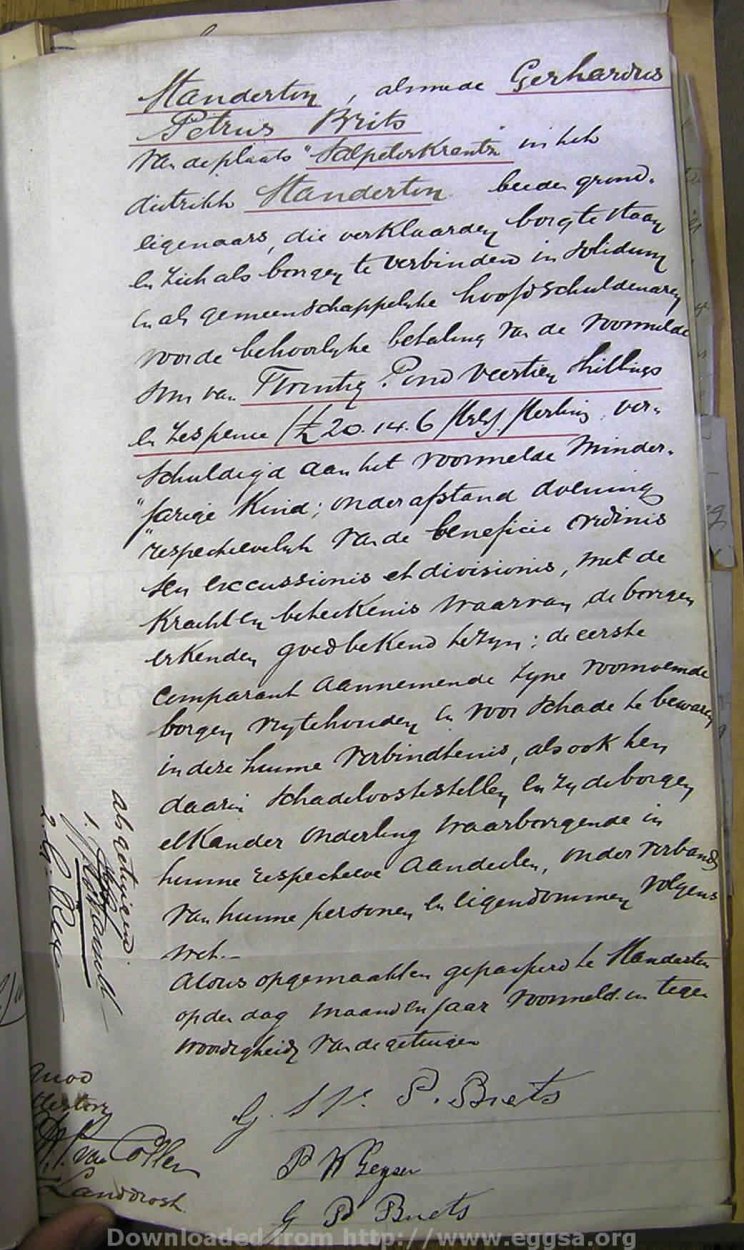 Standerton, alsmede Gerhardus
Petrus Brits
van de plaats "Salpeterkrantz" in het
distrikt Standerton beiden grond-
eigenaars, die verklaarden borg te staan
en zich als borgen te verbinden in Solidum
en als gemeenschappelyke hoofdschuldenaren
voor de behoorlyke betaling van de voormelde
som van Twintig Pond Veertien Shillings
en Zes pence (£20.14.6 Sterling, ver-
schuldigd aan het voormelde minder-
"jarige Kind; onder afstand doening
"respectievelyk van de beneficie ordinis
seu excussionis et divisionis, met de
kracht en beteekenis waarvan de borgen
erkenden goed bekend te zyn; de eerste
comparant aannemende zyne voornoemde
borgen vry te houden en voor schade te bewaren
in deze hunne verbindtenis, alsook hen
daarin schadeloos te stellen en zy de borgen
elkander onderling waarborgende in
hunne respectieve aandeelen, onder verband
van hunne personen en eigendommen volgens
wet.-
Aldus opgemaakt en gepasseerd te Standerton
op den dag maand en jaar voormeld in tegen
woordigheid van de getuigen
G. P. Brets
P W Geyser
G P Brets
Als getuigen
1.
2. G.
quod
attestor
van Colller
Landdrost
Downloaded from http://www.eggsa.org